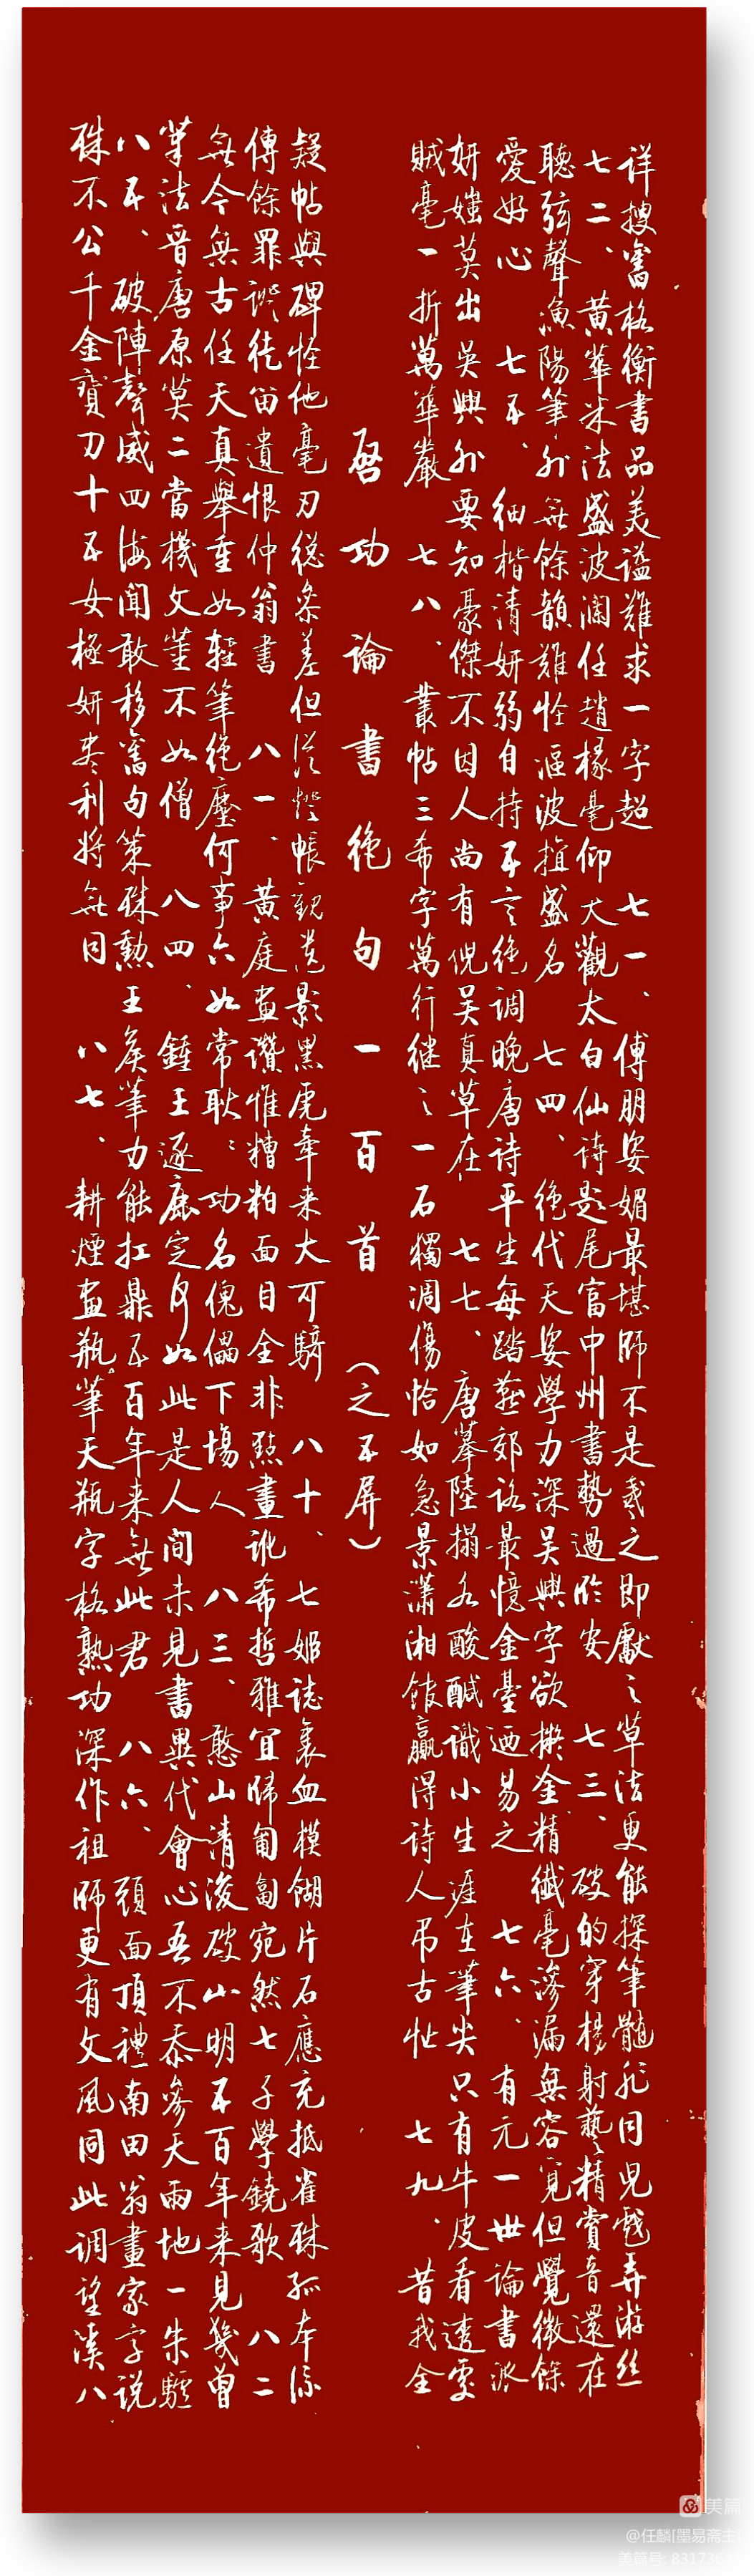 详搜舊格衡書品美谥難求一字超 七一、傅朋姿媚最堪師不是羲之即獻之草法更能探筆髓非同兒戲弄游丝
七二、黄華米法盛波澜任趙椽毫仰大觀太白仙诗題尾富中州書勢過临安 七三、破的穿楊射藝精賞音還在
聽弦聲漁陽筆外無餘韻難怪漚波擅盛名 七四、绝代天姿學力深吴興字欲擬金精纖毫滲漏無容覓但覺微餘
愛好心 七五、细楷清妍弱自持五言绝调晚唐诗平生每踏燕郊路最憶金臺迺易之 七六、有元一世論書派
妍媸莫出吴興外要知豪傑不因人尚有倪吴真草在 七七、唐摹陸搨各酸醎識小生涯在筆尖只有牛皮看透處
賊毫一折萬華嚴 七八、叢帖三希字萬行继之一石獨凋傷恰如急景潇湘館赢得诗人吊古忙 七九、昔我全
启功論書绝句一百首（之五屏）
疑帖與碑怪他毫刃總參差但從燈帳觀遺影黑虎牽来大可騎 八十、七姬誌裏血模餬片石應充抵雀珠孤本流
傳餘罪證徒留遺恨仲翁書 八一、黄庭画讚惟糟粕面目全非點畫訛希哲雅宜歸匍匐宛然七子學鐃歌 八二
無今無古任天真舉重如輕筆绝塵何事六如常耿耿功名傀儡下場人 八三、憨山清後破山明五百年来見幾曾
筆法晋唐原莫二當機文董不如僧 八四、鍾王逐鹿定何如此是人間未見書異代會心吾不忝參天兩地一朱驢
八五、破陣聲威四海聞敢移舊句策殊勲王侯筆力能扛鼎五百年来無此君 八六、頭面頂禮南田翁畫家字说
殊不公千金寶刀十五女極妍盡利将無同 八七、耕煙画瓶筆天瓶字格熟功深作祖師更有文風同此调望溪八
美篇
@任麟[墨易斋主]